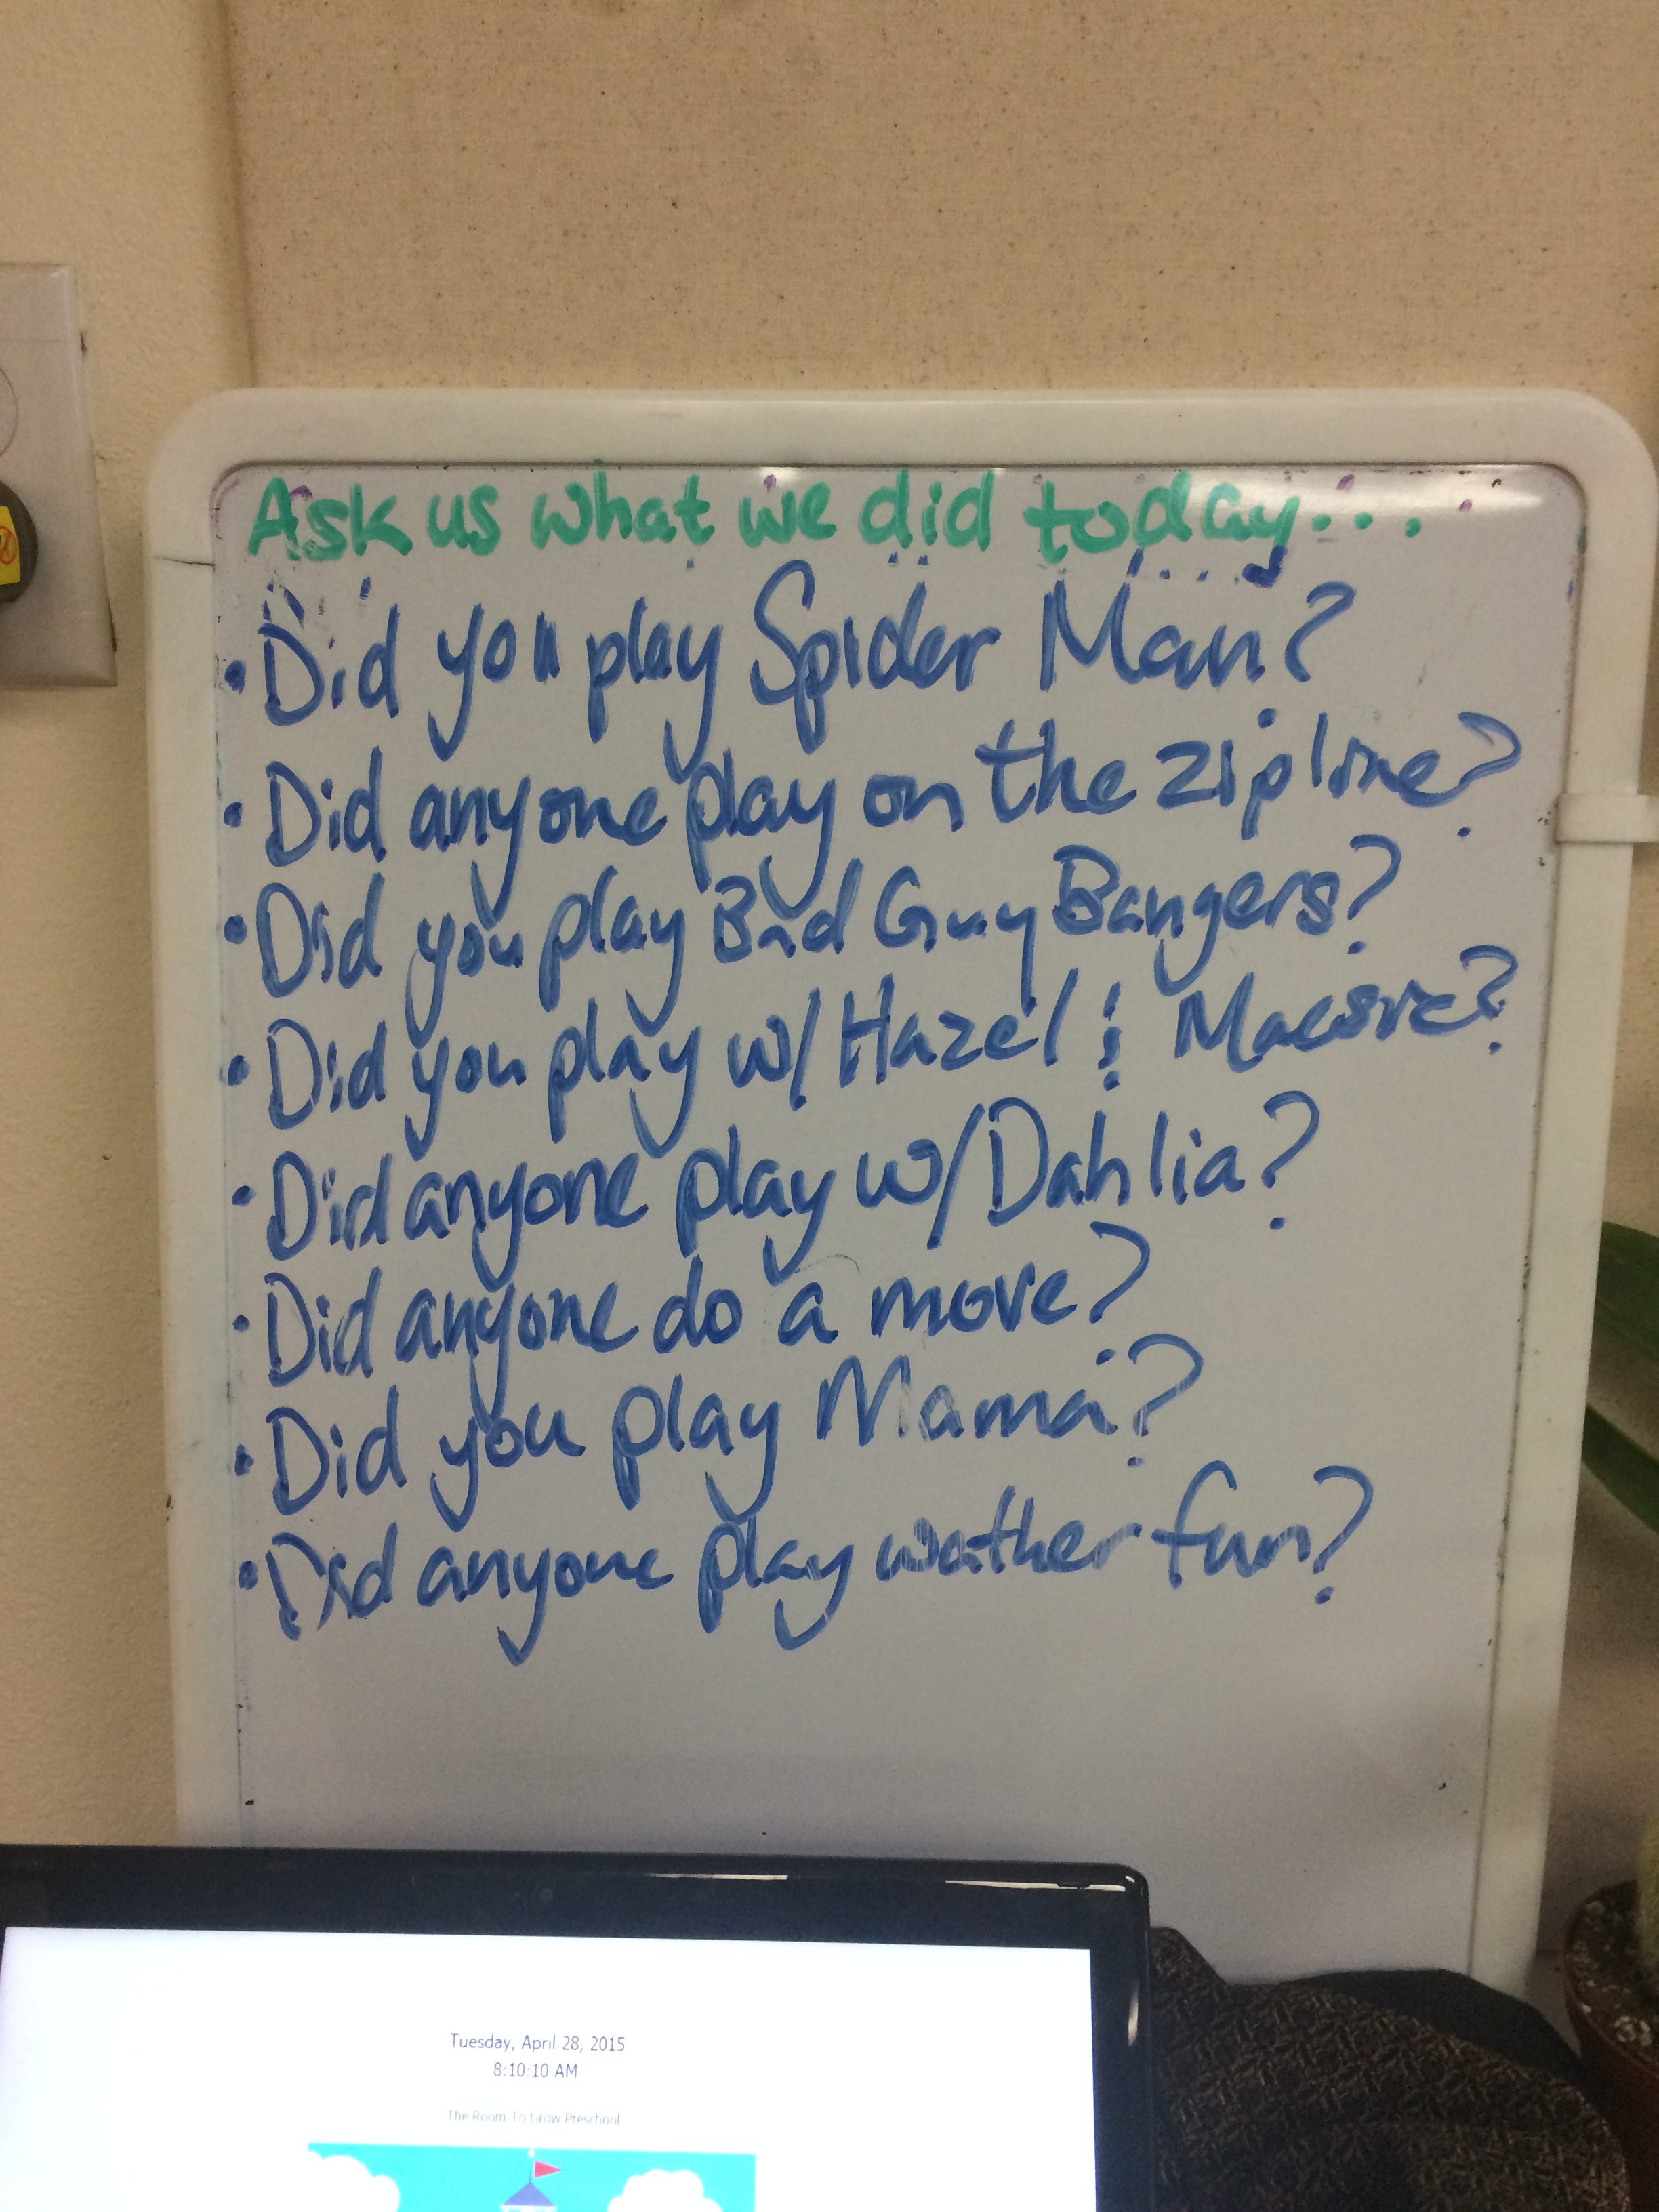 Ask us what we did today...
• Did you play Spider Man?
• Did anyone play on the zipline?
• Did you play Bad Guy Bangers?
• Did you play w/ Hazel & Maesie?
• Did anyone play w/ Dahlia?
• Did anyone do a move?
• Did you play Mama?
• Did anyone play wather fun?
Tuesday, April 28, 2015
8:10:10 AM
The Room To Grow Preschool